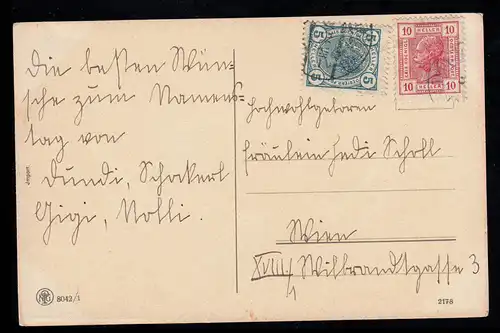 Die besten Wün-
sche zum Namens-
tag von
Dundi, Schackerl
Gigi, Nolli.
Hochwohlgeboren
Fräulein Hedi Scholl
Wien
XVIII/1 Wilbrandtgasse 3
5 5
5 5
10 HELLER 10
10 HELLER 10
Jaeger.
8042/1
2178